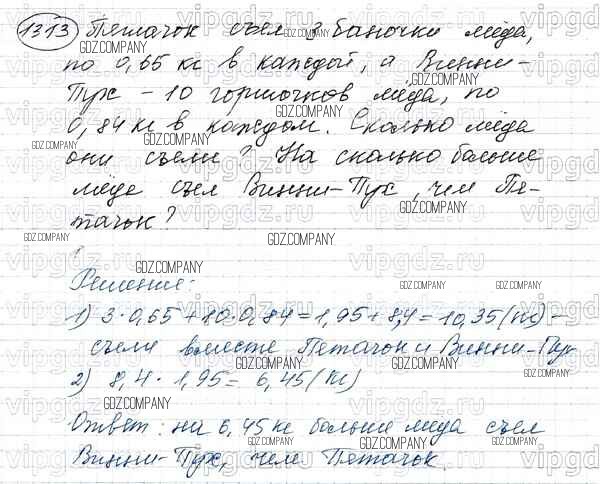 1313 Пятачок съел 3 баночки мёда,
по 0,65 кг в каждой, а Винни-
Пух - 10 горшочков мёда, по
0,84 кг в каждом. Сколько мёда
они съели? На сколько больше
мёда съел Винни-Пух, чем Пя-
тачок?
Решение:
1) 3·0,65+10·0,84=1,95+8,4=10,35(кг) -
съели вместе Пятачок и Винни-Пух
2) 8,4 · 1,95 = 6,45 (кг)
Ответ: на 6,45 кг больше мёда съел
Винни-Пух, чем Пятачок.